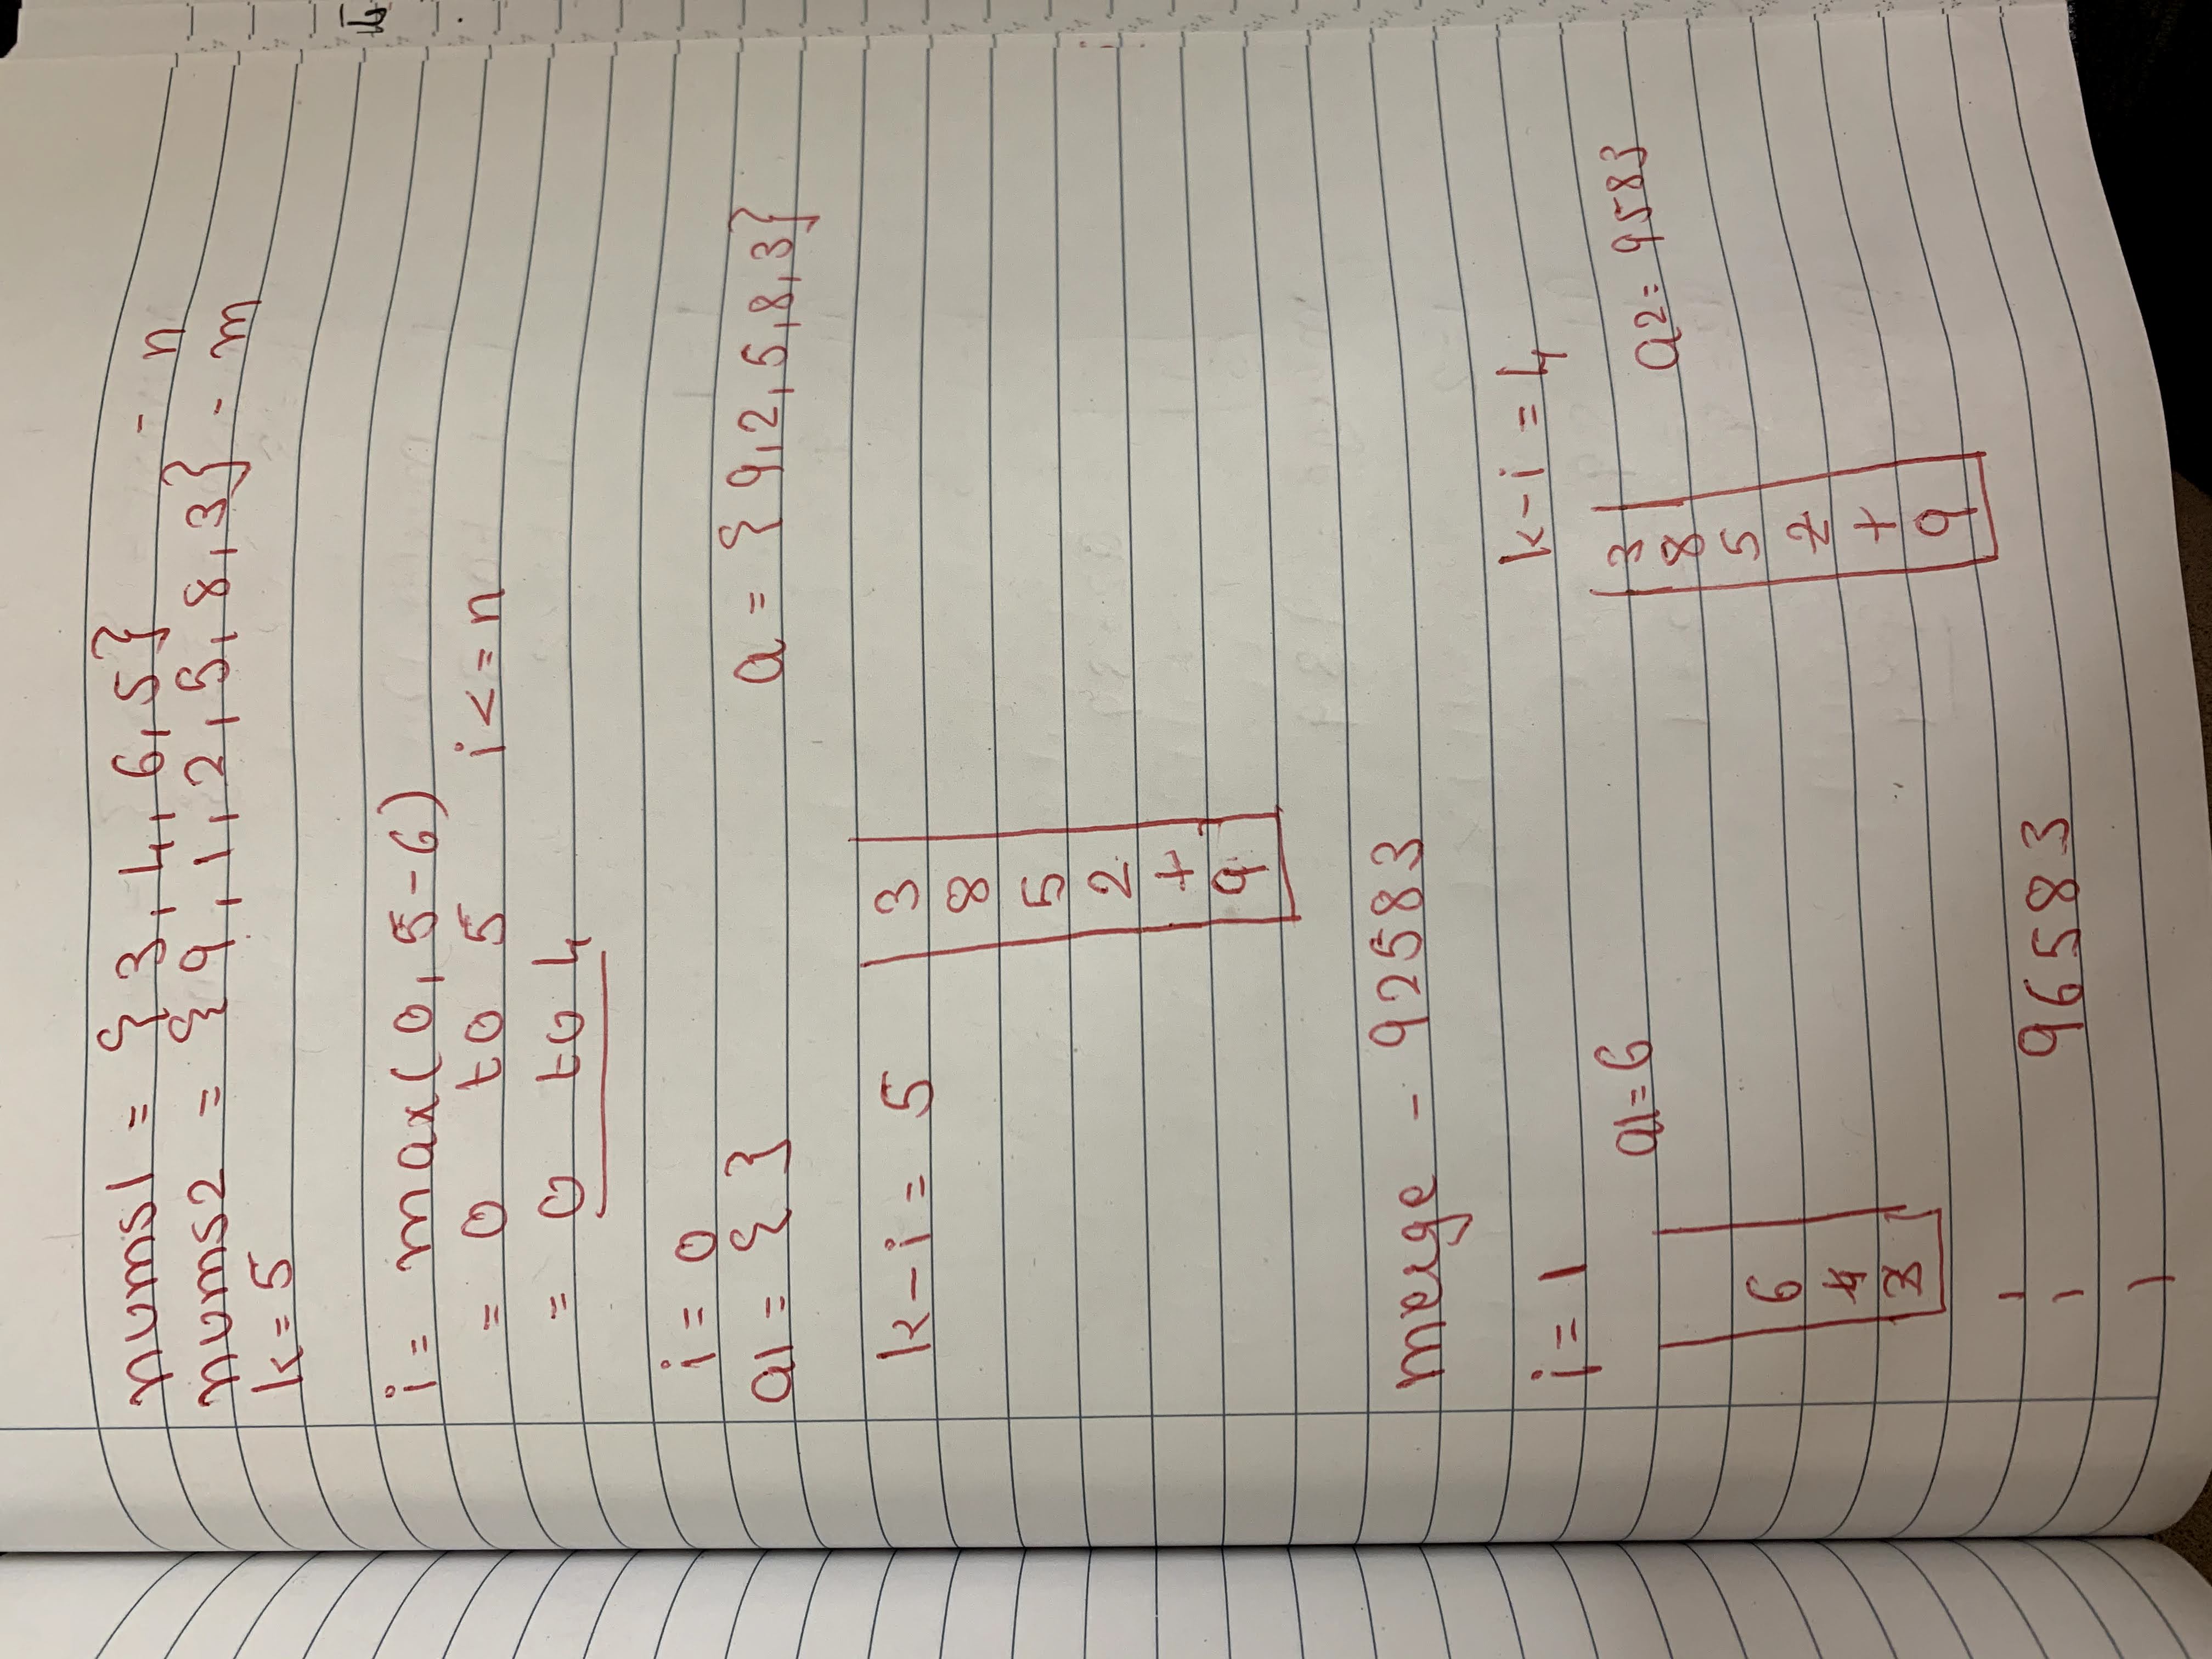 nums1 = {3, 4, 6, 5} - n
nums2 = {9, 1, 2, 5, 8, 3} - m
k = 5
i = max(0, 5-6)
= 0 to 5 i <= n
= 0 to 4
i = 0
a1 = { } a = {9, 2, 5, 8, 3}
k - i = 5 3
8
5
2
1
9
merge - 92583
i = 1 k - i = 4
a1 = 6 3 a2 = 9583
8
5
6 2
4 1
3 9
96583